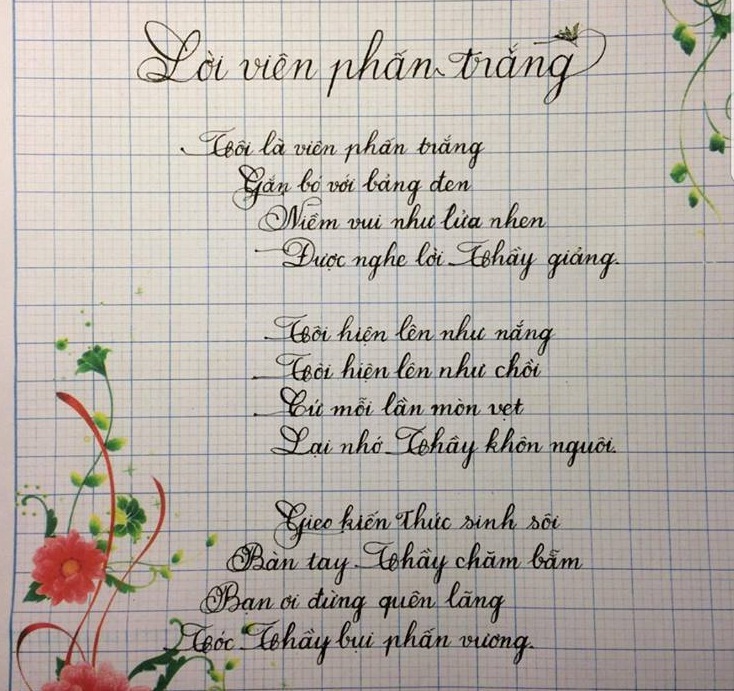 Lời viên phấn trắng
Tôi là viên phấn trắng
Gắn bó với bảng đen
Niềm vui như lửa nhen
Được nghe lời Thầy giảng.
Tôi hiện lên như nắng
Tôi hiện lên như chồi
Cứ mỗi lần mòn vẹt
Lại nhớ Thầy khôn nguôi.
Gieo kiến thức sinh sôi
Bàn tay Thầy chăm bẵm
Bạn ơi đừng quên lãng
Tóc Thầy bụi phấn vương.